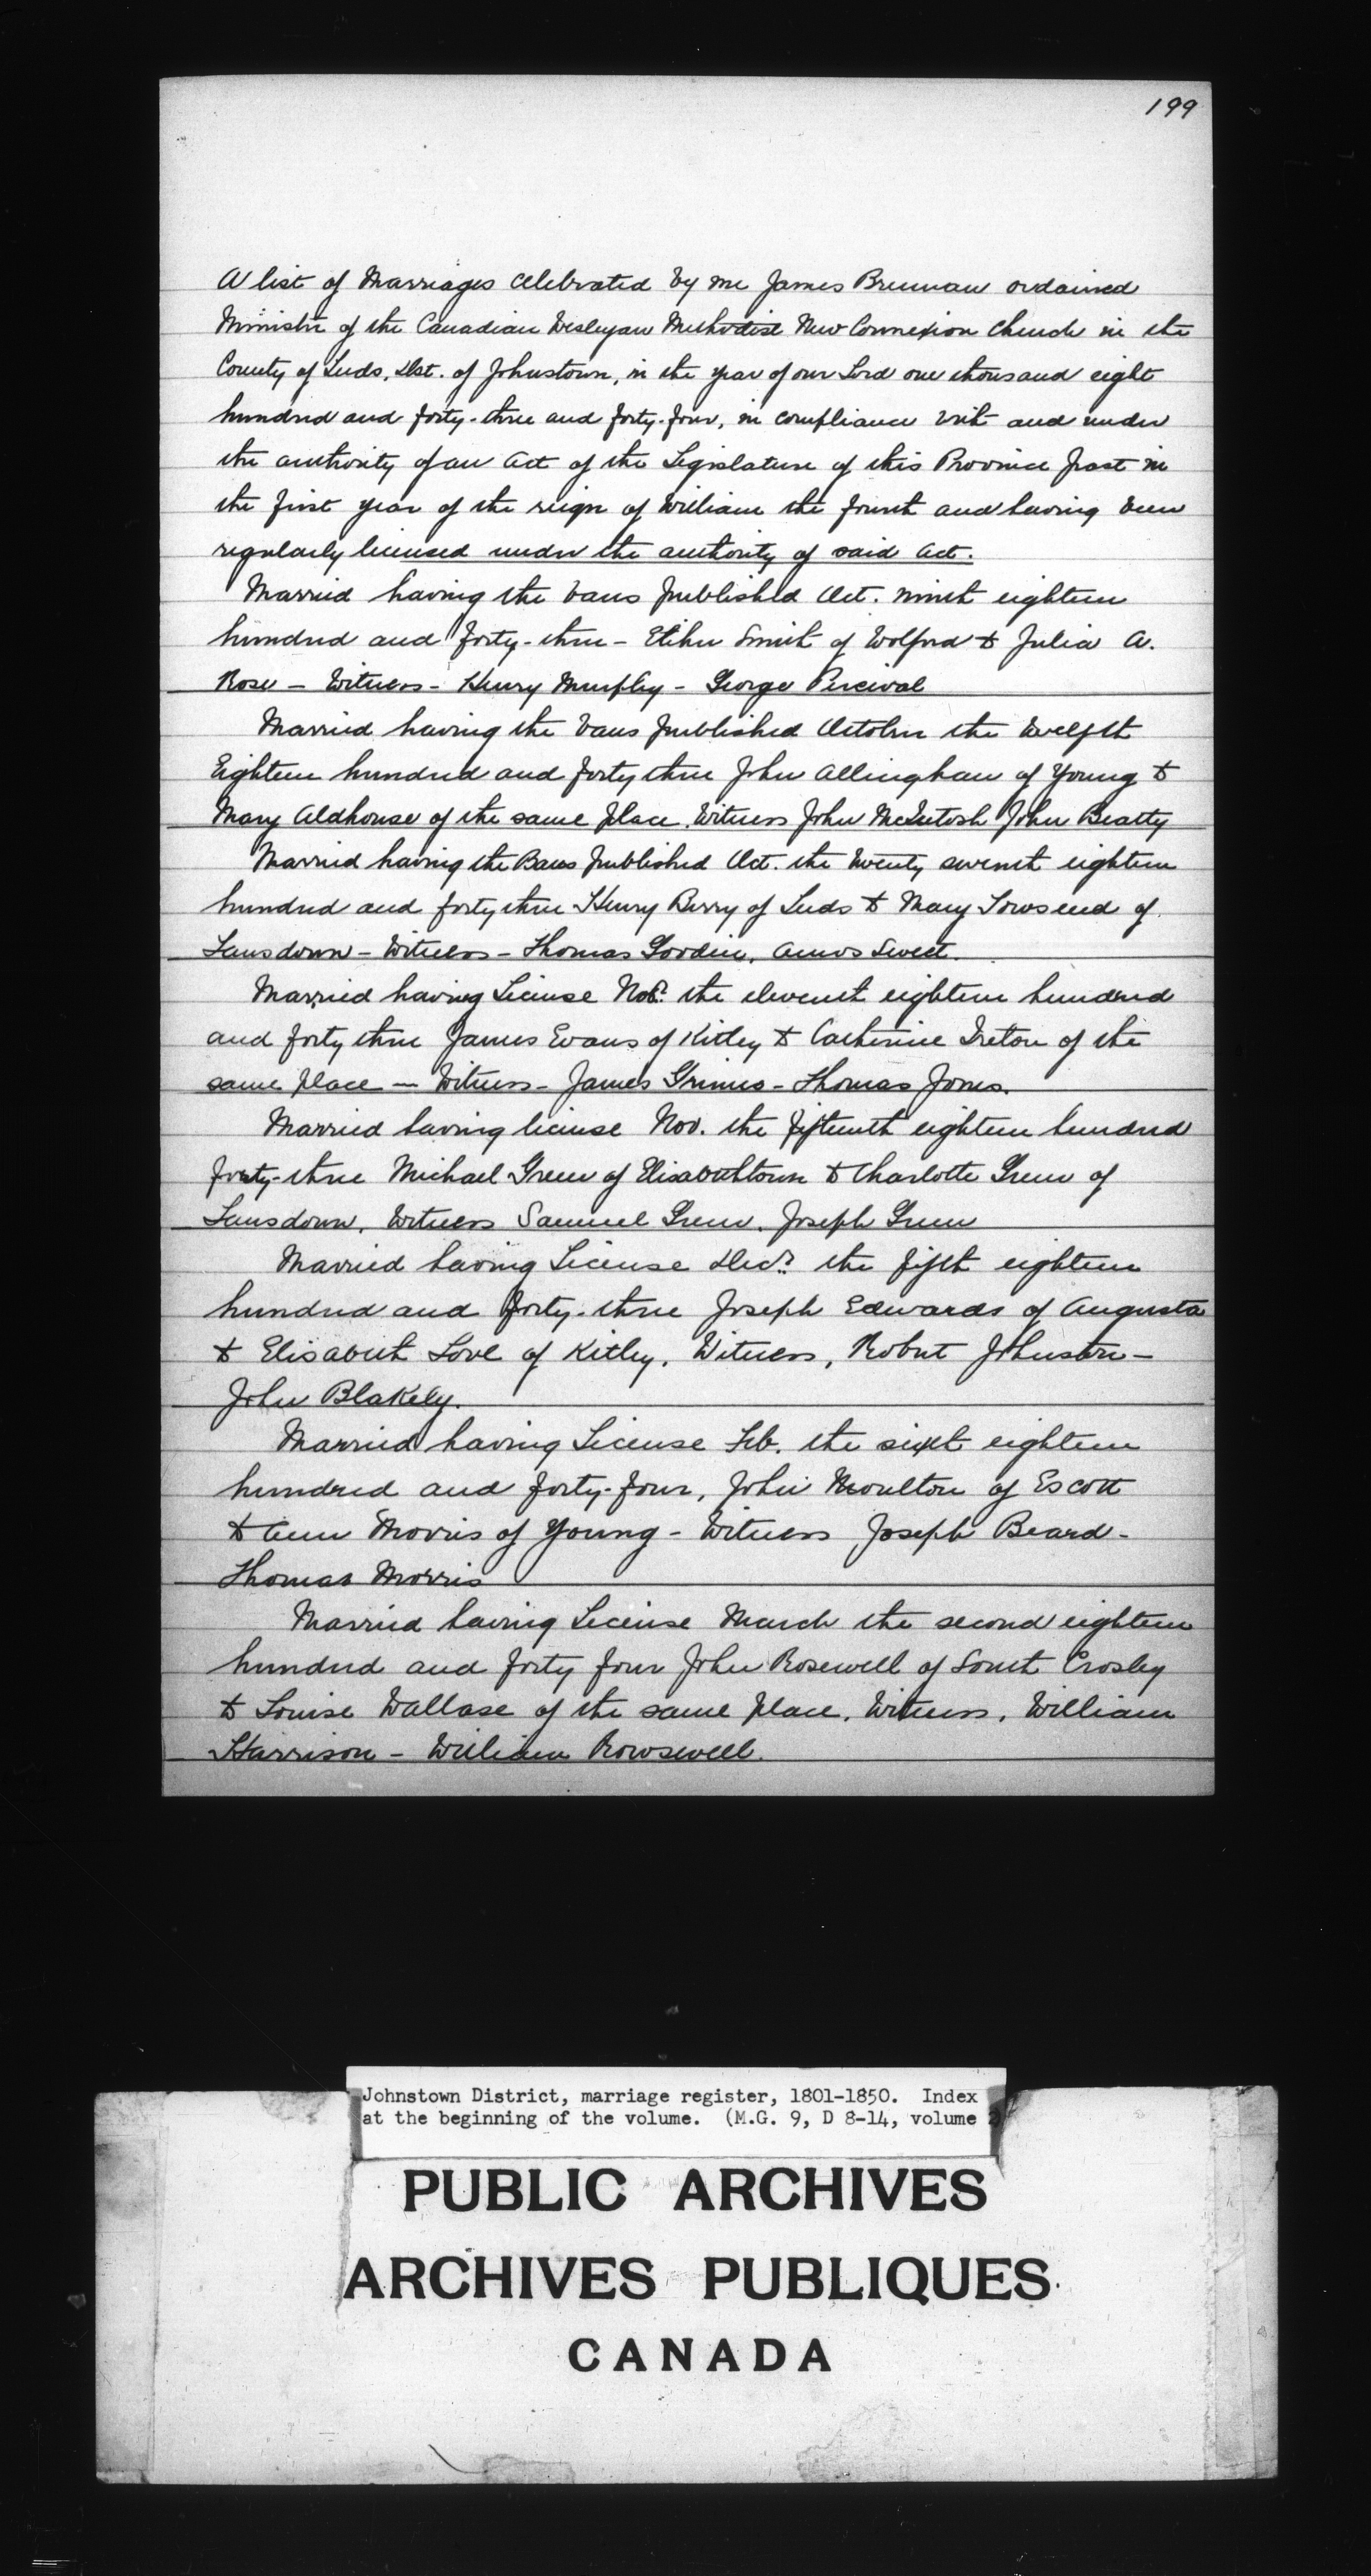 199
A list of Marriages celebrated by me James Brennan ordained
Minister of the Canadian Wesleyan Methodist New Connexion Church in the
County of Leeds, Dist. of Johnstown, in the year of our Lord one thousand eight
hundred and forty-three and forty-four, in compliance with and under
the authority of an Act of the Legislature of this Province past in
the first year of the reign of William the fourth and having been
regularly licensed under the authority of said Act.
Married having the bans published Oct. ninth eighteen
hundred and forty-three - Smith of Wolford & Julia A.
Rose - Witness - Henry Murphy - George Percival
Married having the bans published October the twelfth
Eighteen hundred and forty three John Allingham of Young &
Mary Aldhouse of the same place. Witness John McIntosh John Beatty
Married having the Bans published Oct. the twenty seventh eighteen
hundred and forty three Henry Berry of Leeds & Mary Towsend of
Lansdown - Witness - Thomas Amos Sweet.
Married having License Nobr. the eleventh eighteen hundred
and forty three James Evans of Kitley & Catherine Ireton of the
same place - Witness - James Grimes - Thomas Jones.
Married having license Nov. the fifteenth eighteen hundred
forty-three Michael Green of Elisabethtown & Charlotte Green of
Lansdown. Witness Samuel Green. Joseph Green
Married having License Decr. the fifth eighteen
hundred and forty-three Joseph Edwards of Augusta
& Elisabeth Love of Kitley. Witness, Robert Johnston -
John Blakely.
Married having License Feb. the sixth eighteen
hundred and forty-four, John Moulton of Escott
& Ann Morris of Young - Witness Joseph Beard -
Thomas Morris
Married having License March the second eighteen
hundred and forty four John Rosewell of South Crosby
& Louise Wallase of the same place. Witness, William
Harrison - William Rowswell.
Johnstown District, marriage register, 1801-1850. Index
at the beginning of the volume. (M.G. 9, D 8-14, volume
PUBLIC ARCHIVES
ARCHIVES PUBLIQUES
CANADA